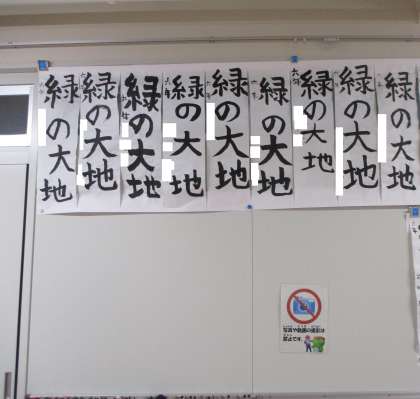 緑の大地
緑の大地
緑の大地
緑の大地
緑の大地
緑の大地
緑の大地
緑の大地
緑の大地
写真や動画の撮影は
禁止です。